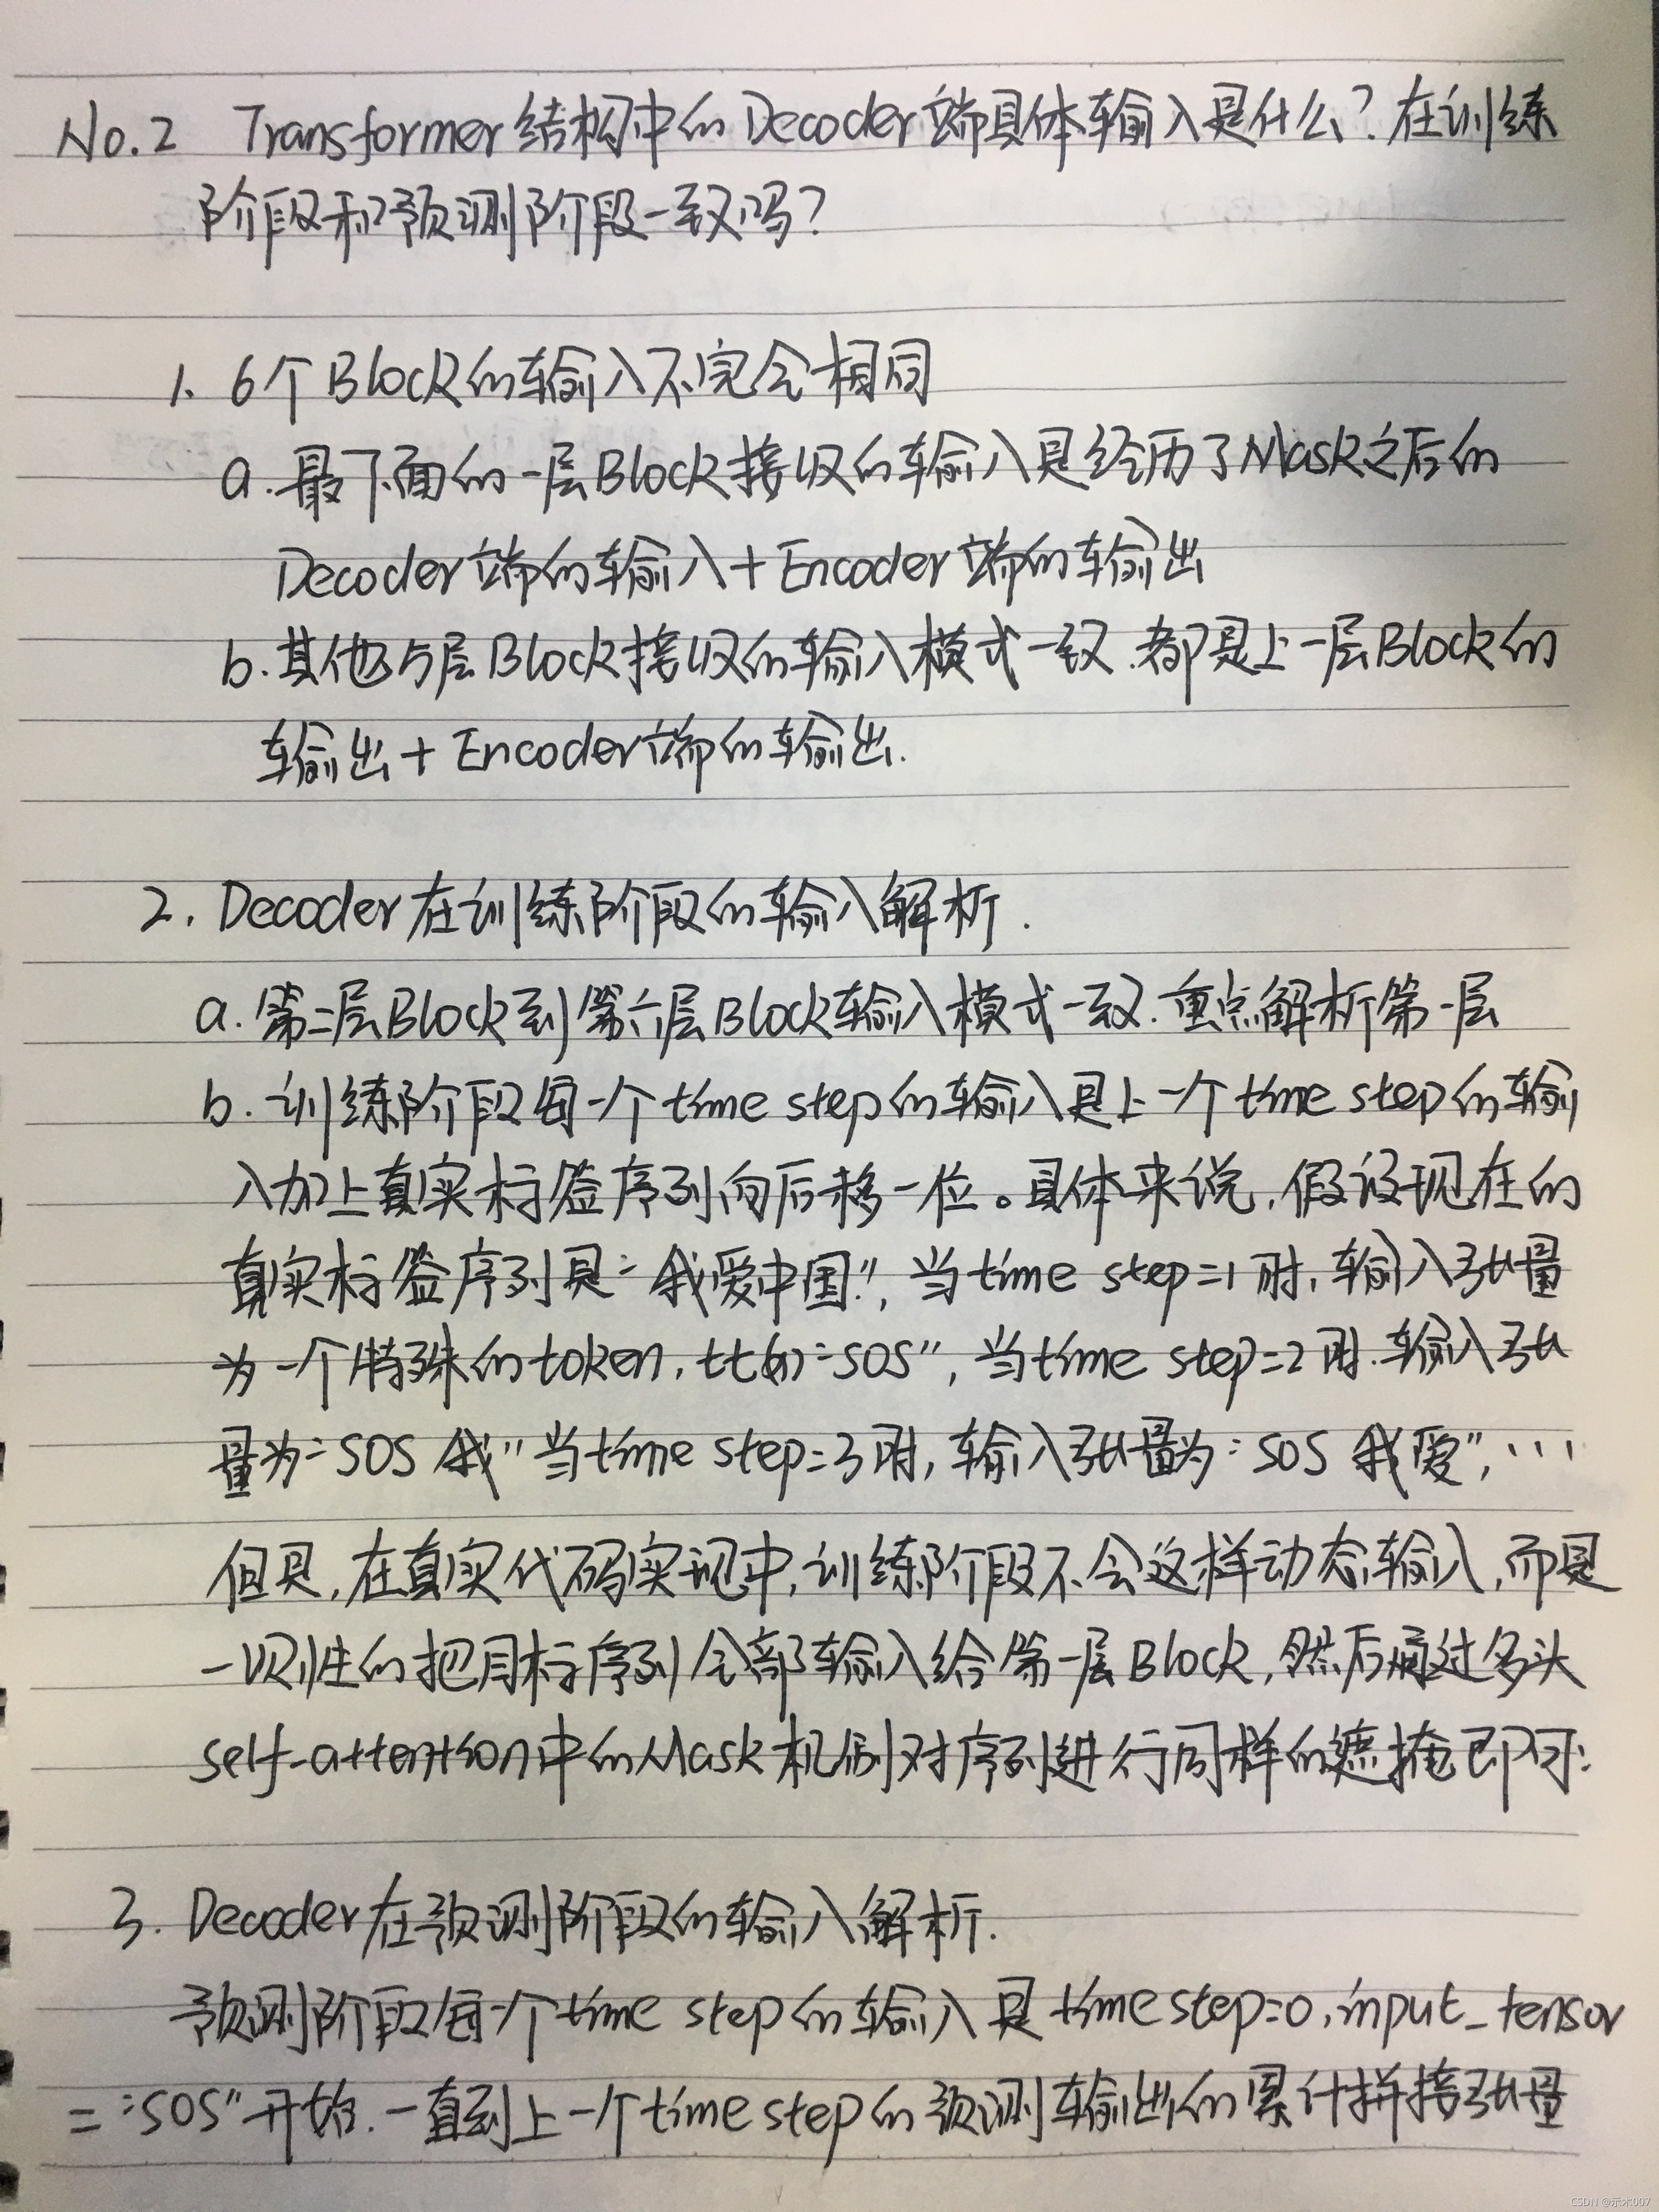 No.2 Transformer结构中的Decoder端具体输入是什么?在训练
阶段和预测阶段一致吗?
1. 6个Block的输入不完全相同
a.最下面的一层Block接收的输入是经历了Mask之后的
Decoder端的输入+Encoder端的输出
b.其他5层Block接收的输入模式一致.都是上一层Block的
输出+Encoder端的输出.
2. Decoder在训练阶段的输入解析.
a.第二层Block到第六层Block输入模式一致.重点解析第一层
b.训练阶段每一个time step的输入是上一个time step的输
入加上真实标签序列向后移一位。具体来说,假设现在的
真实标签序列是"我爱中国",当time step=1时,输入张量
为一个特殊的token,比如"SOS",当time step=2时.输入张
量为"SOS 我"当time step=3时,输入张量为"SOS 我爱",...
但是,在真实代码实现中,训练阶段不会这样动态输入,而是
一次性的把目标序列全部输入给第一层Block,然后通过多头
self-attention中的Mask机制对序列进行同样的遮掩即可.
3. Decoder在预测阶段的输入解析.
预测阶段每一个time step的输入是time step=0,input_tensor
="SOS"开始.一直到上一个time step的预测输出的累计拼接张量
CSDN @示木007